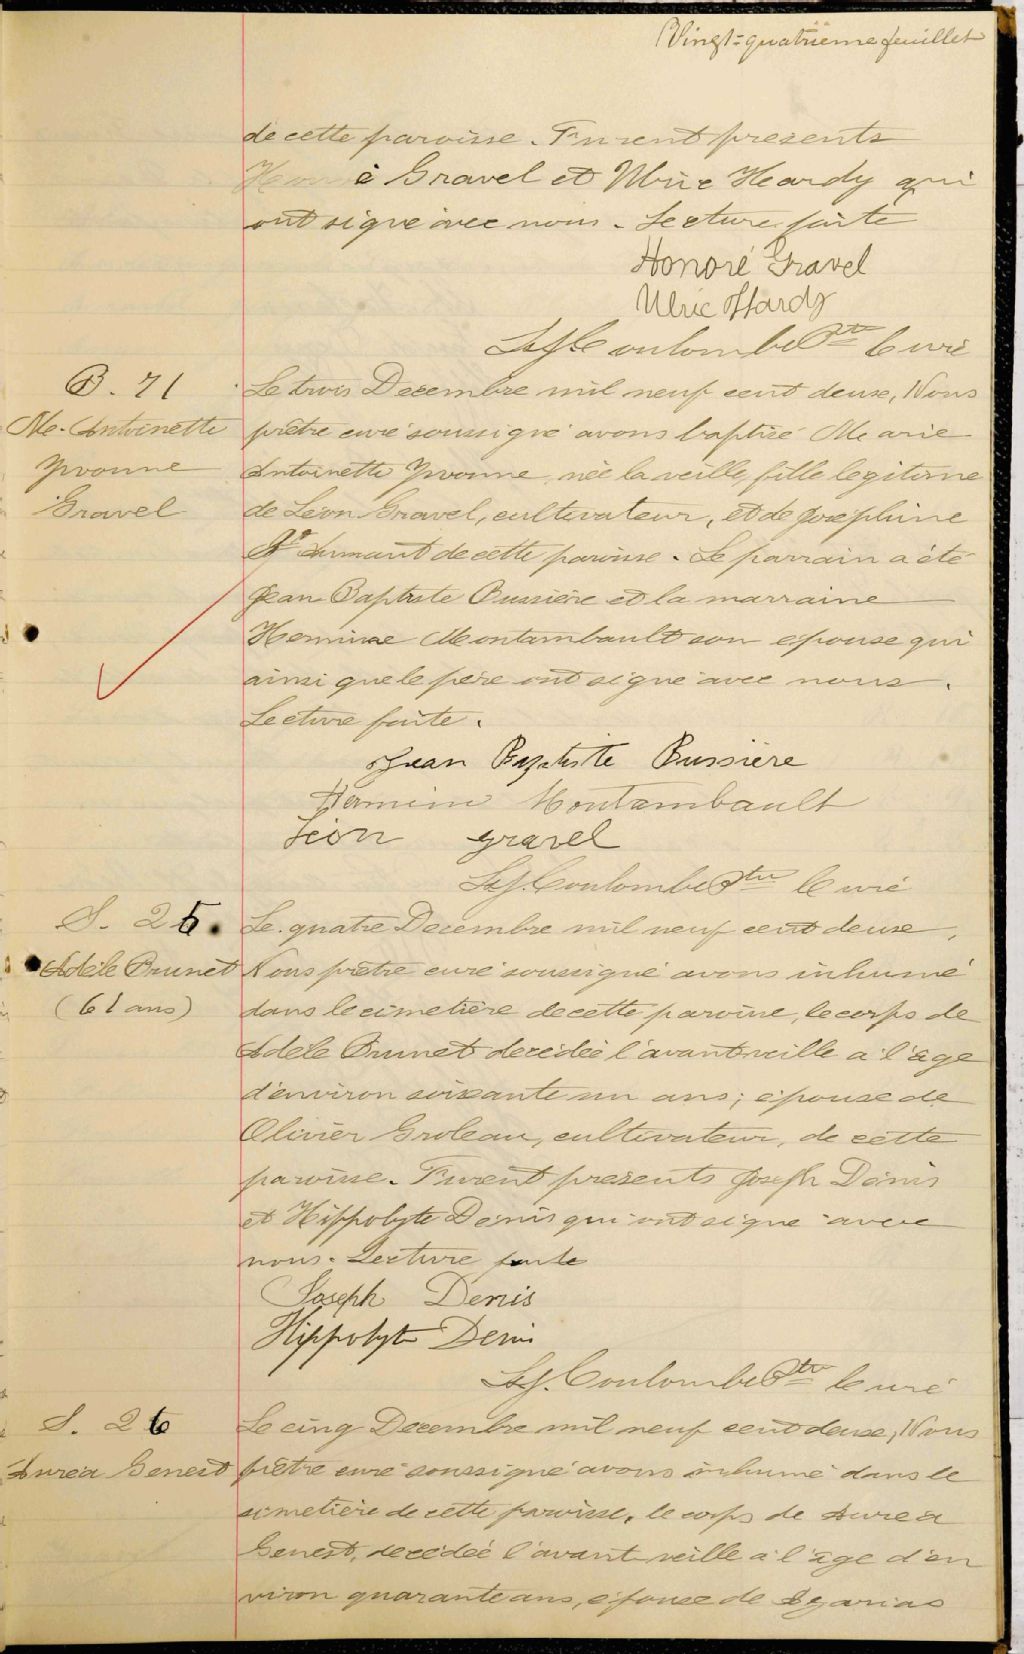 Vingt-quatrième feuillet
de cette paroisse. Furent presents
Honoré Gravel et Ulric Hardy qui
ont signé avec nous. Lecture faite
Honoré Gravel
Ulric Hardy
Coulombe Ptre Curé
B. 71
Me. Antoinette
Yvonne
Gravel
Le trois Decembre mil neuf cent deux, Nous
prêtre curé soussigné avons baptisé Marie
Antoinette Yvonne, née la veille, fille legitime
de Léon Gravel, cultivateur, et de Josephine
St Amant de cette paroisse. Le parrain a été
Jean Baptiste Bussière et la marraine
Hermine Montambault son epouse qui
ainsi que le père ont signé avec nous.
Lecture faite.
Jean Baptiste Bussière
Hermine Montambault
Léon gravel
Coulombe Ptre Curé
S. 25.
Adèle Brunet
(61 ans)
Le quatre Decembre mil neuf cent deux,
Nous prêtre curé soussigné avons inhumé
dans le cimetière de cette paroisse, le corps de
Adèle Brunet decédée l'avant veille a l'âge
d'environ soixante un ans; épouse de
Olivier Groleau, cultivateur, de cette
paroisse. Furent presents Joseph Denis
et Hippolyte Denis qui ont signé avec
nous. Lecture faite
Joseph Denis
Hippolyte Denis
Coulombe Ptre Curé
S. 26
Auréa Genest
Le cinq Decembre mil neuf cent deux, Nous
prêtre curé soussigné avons inhumé dans le
cimetière de cette paroisse, le corps de Aurea
Genest, decédée l'avant veille a l'âge d'en
viron quarante ans, épouse de